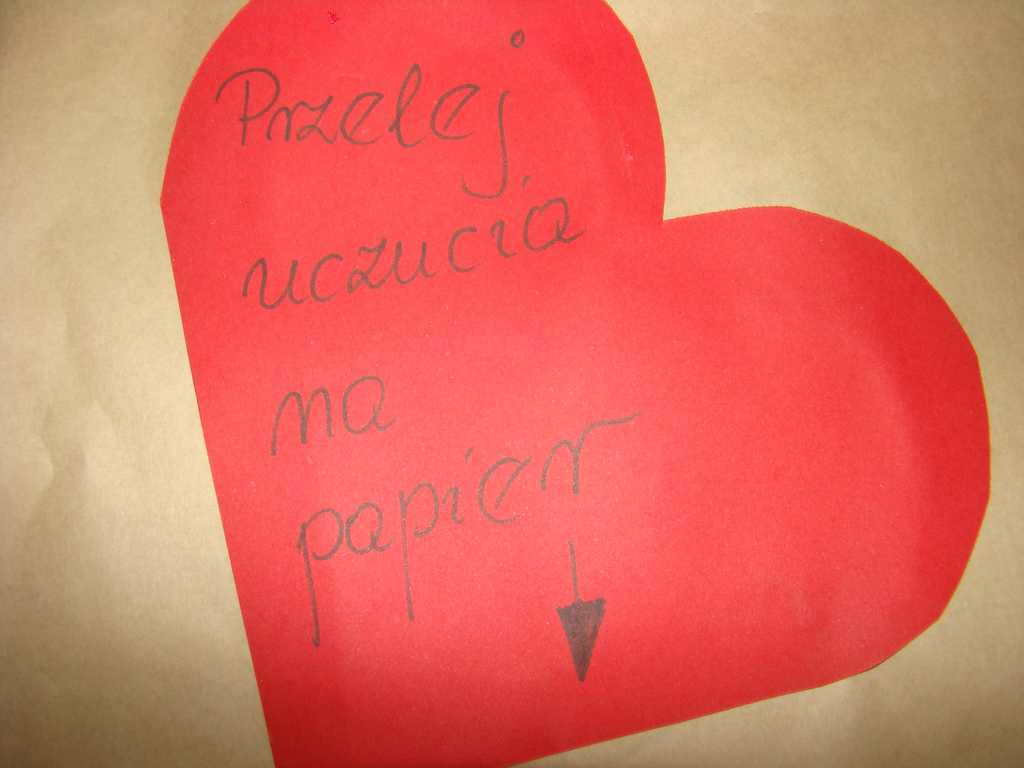 Przelej
uczucia
na
papier